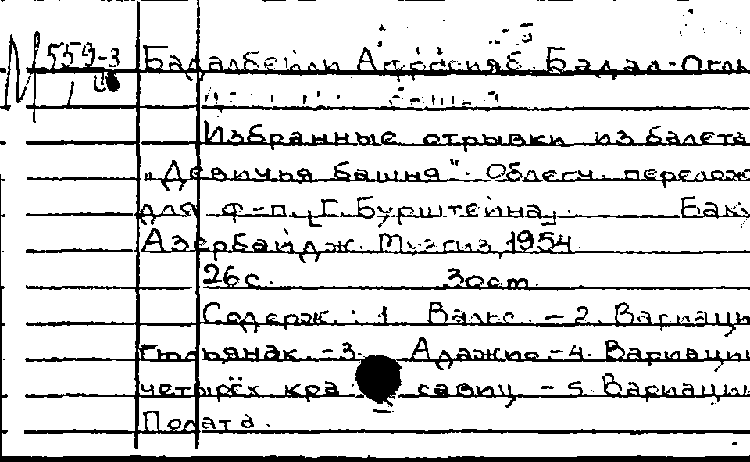 N 559-3 Бадалбейли Афрасияб Бадал-оглы
Избранные отрывки из балета
„Девичья башня". Облегч. перелож
для ф-п. [Г. Бурштейна]. Баку
Азербайдж. Музгиз, 1954
26 с. 30 см
Содерж.: 1. Вальс. – 2. Вариации
Гюльянак. – 3. Адажио. – 4. Вариации
четырёх красавиц – 5 Вариации
Полата.